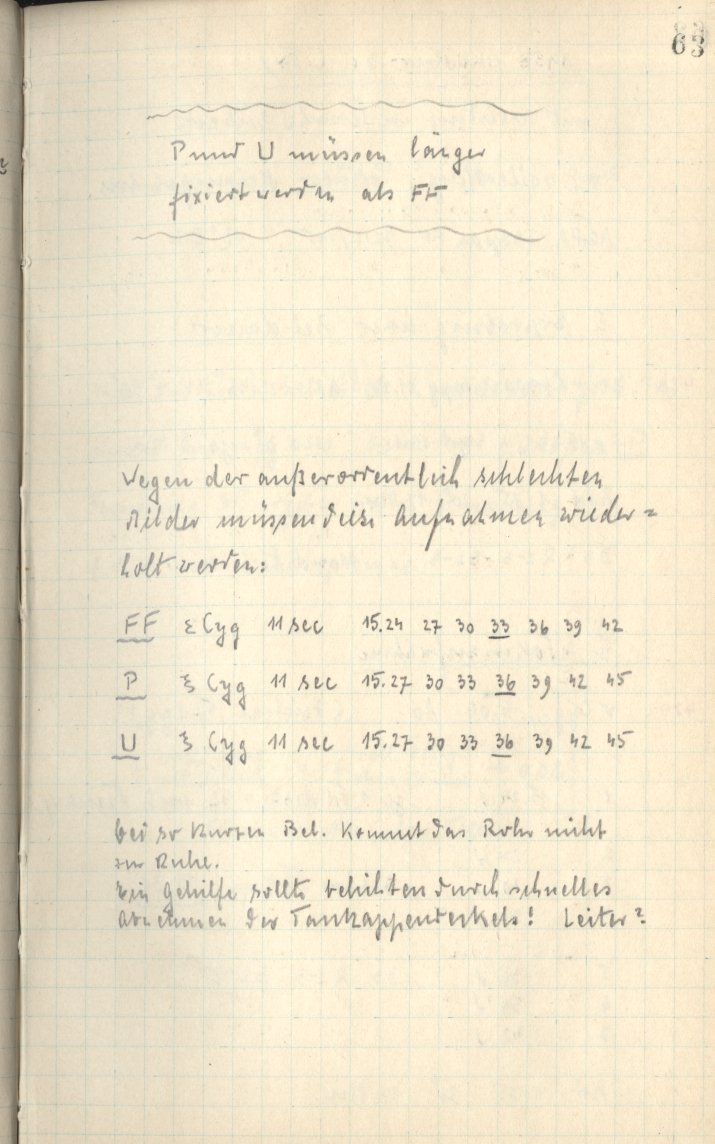 63
P und U müssen länger
fixiert werden als FF
Wegen der außerordentlich schlechten
Bilder müssen diese Aufnahmen wieder=
holt werden:
FF ξ Cyg 11 sec 15.24 27 30 33 36 39 42
P ξ Cyg 11 sec 15.27 30 33 36 39 42 45
U ξ Cyg 11 sec 15.27 30 33 36 39 42 45
bei so kurzen Bel. kommt das Rohr nicht
zur Ruhe.
Ein Gehilfe sollte belichten durch schnelles
abnehmen des Taukappendeckels! Leiter?